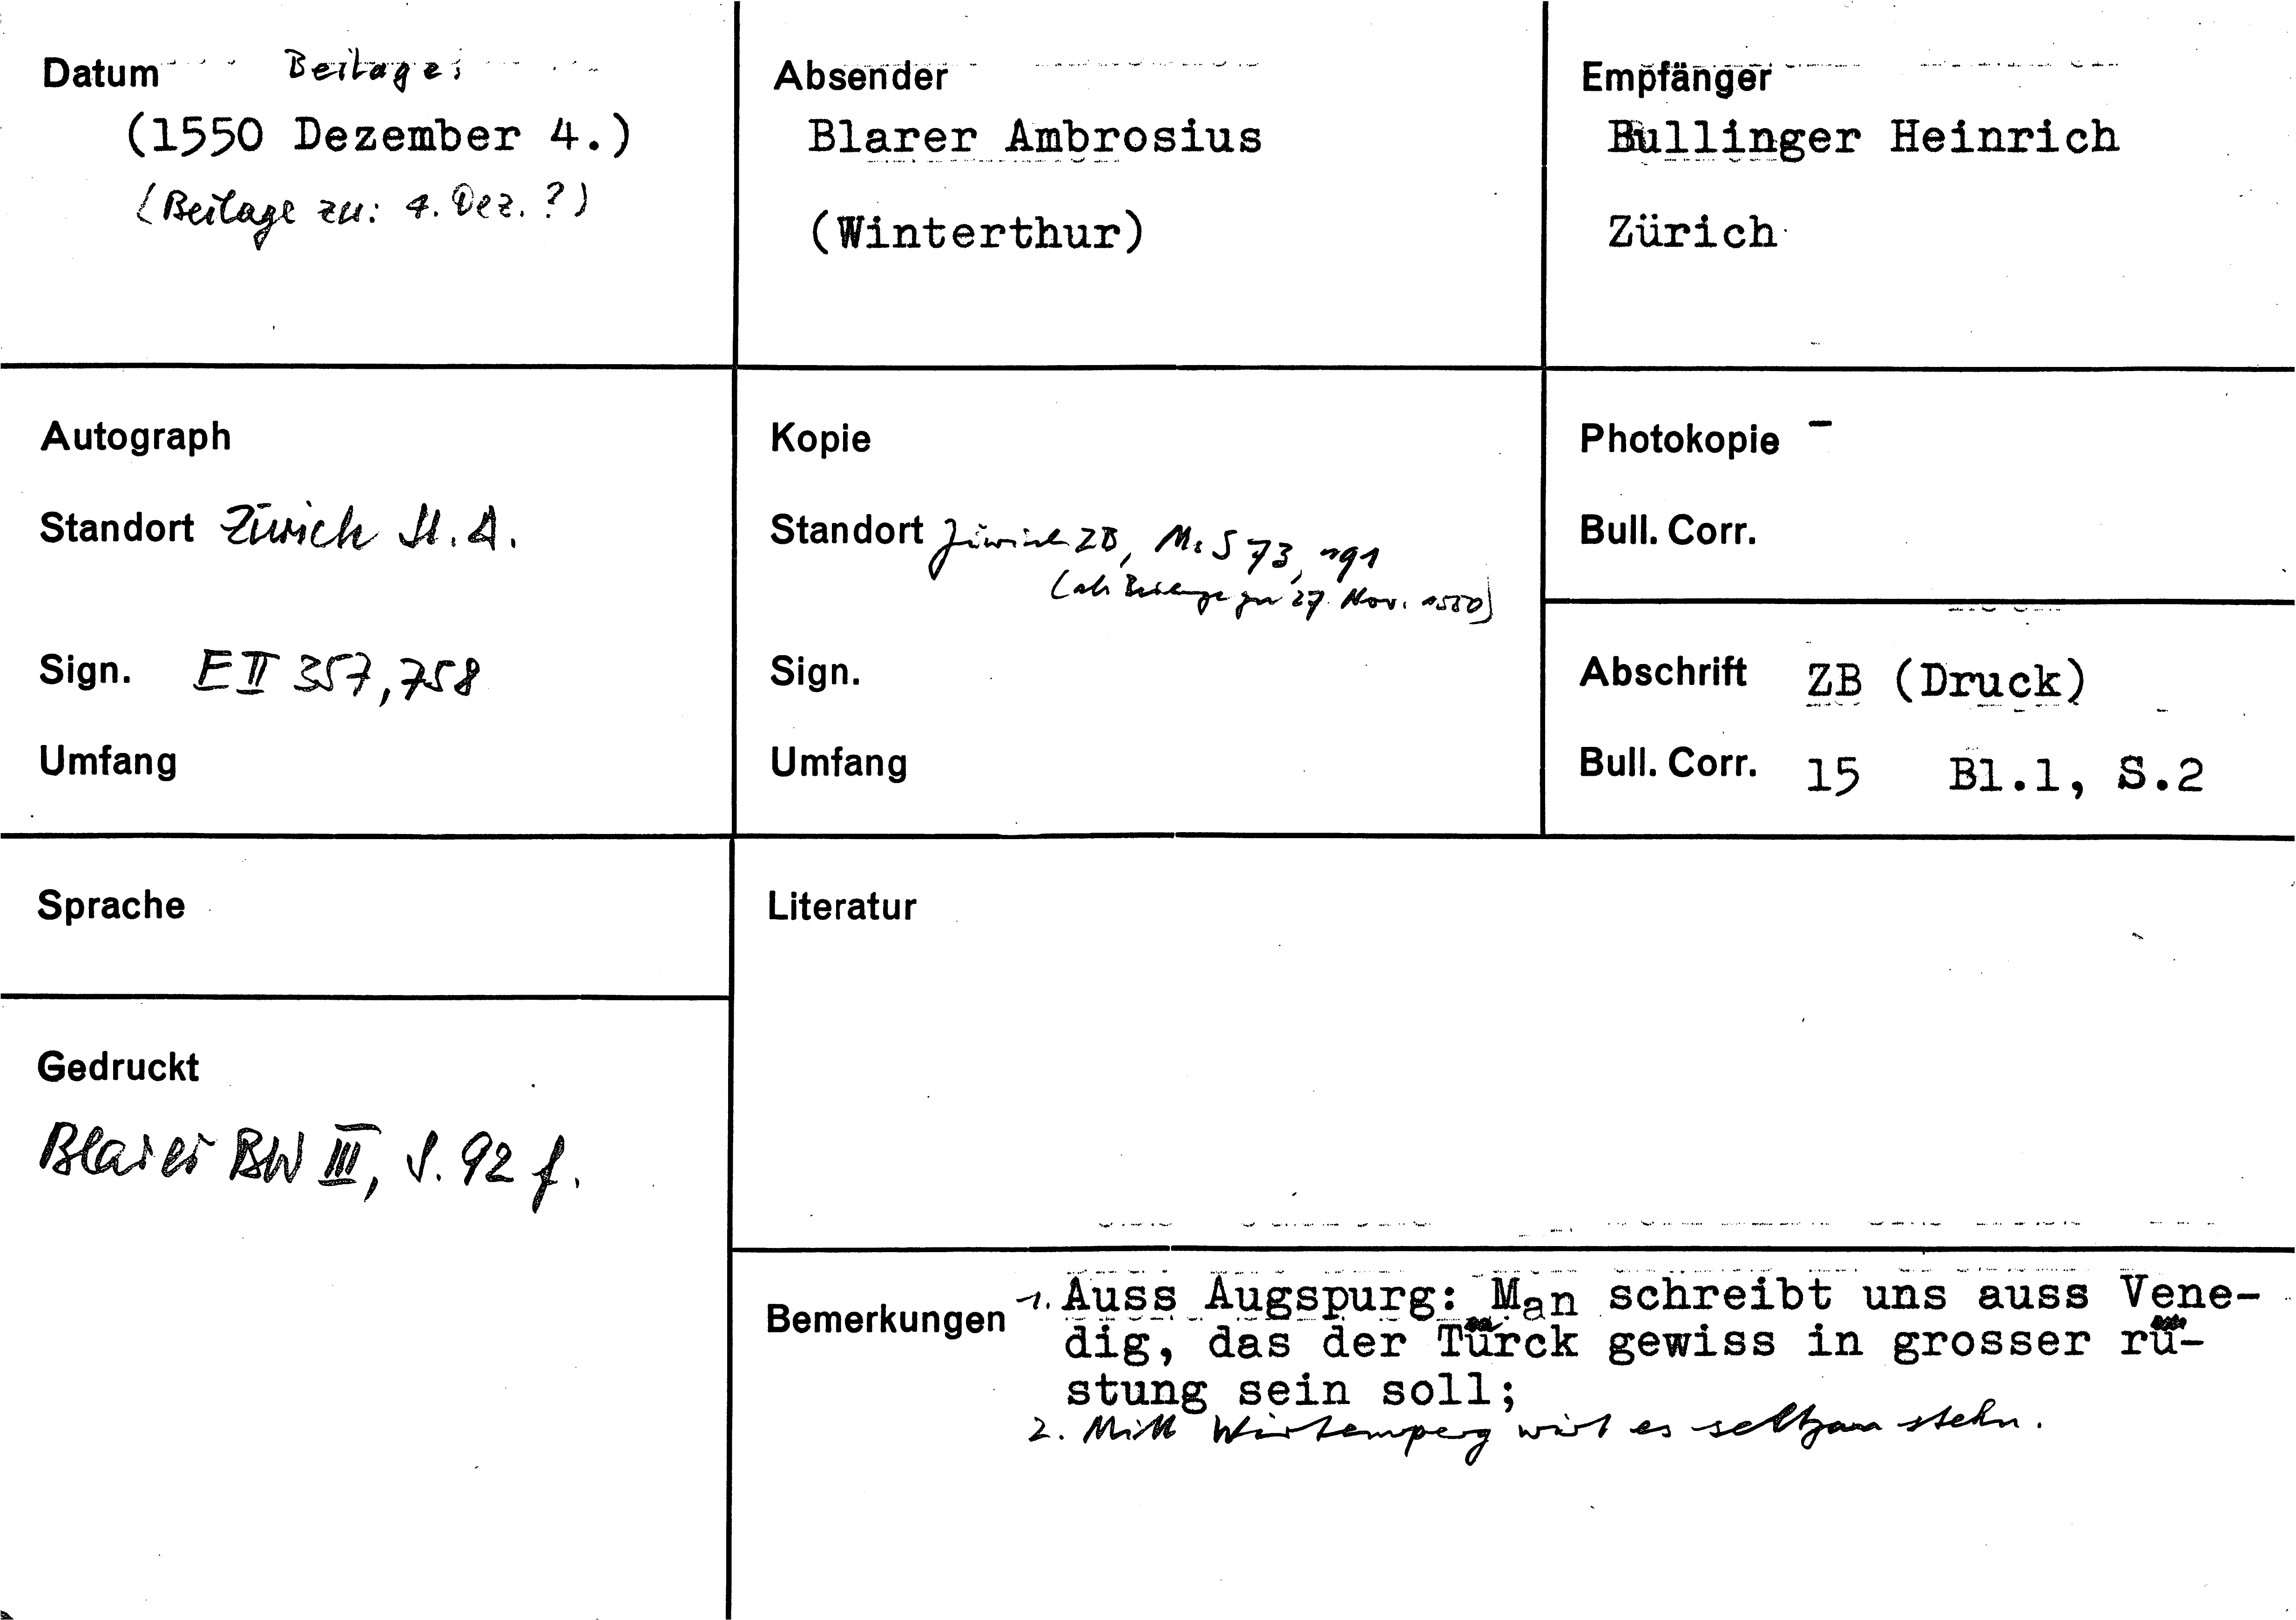 Datum Beilage:
(1550 Dezember 4.)
(Beilage zu: 4. Dez. ?)
Absender
Blarer Ambrosius
(Winterthur)
Empfänger
Bullinger Heinrich
Zürich
Autograph
Standort Zürich St. A.
Sign. E II 357, 758
Umfang
Kopie
Standort Zürich ZB, Ms S 73, 191
(als Beilage zu 27. Nov. 1550)
Sign.
Umfang
Photokopie -
Bull. Corr.
Abschrift ZB (Druck)
Bull. Corr. 15 Bl.1, S.2
Sprache
Literatur
Gedruckt
Blarer BW III, S. 92 f.
Bemerkungen 1. Auss Augspurg: Man schreibt uns auss Vene-
dig, das der Türck gewiss in grosser rü-
stung sein soll;
2. Mitt Wirtemperg wirt es seltzam stehn.